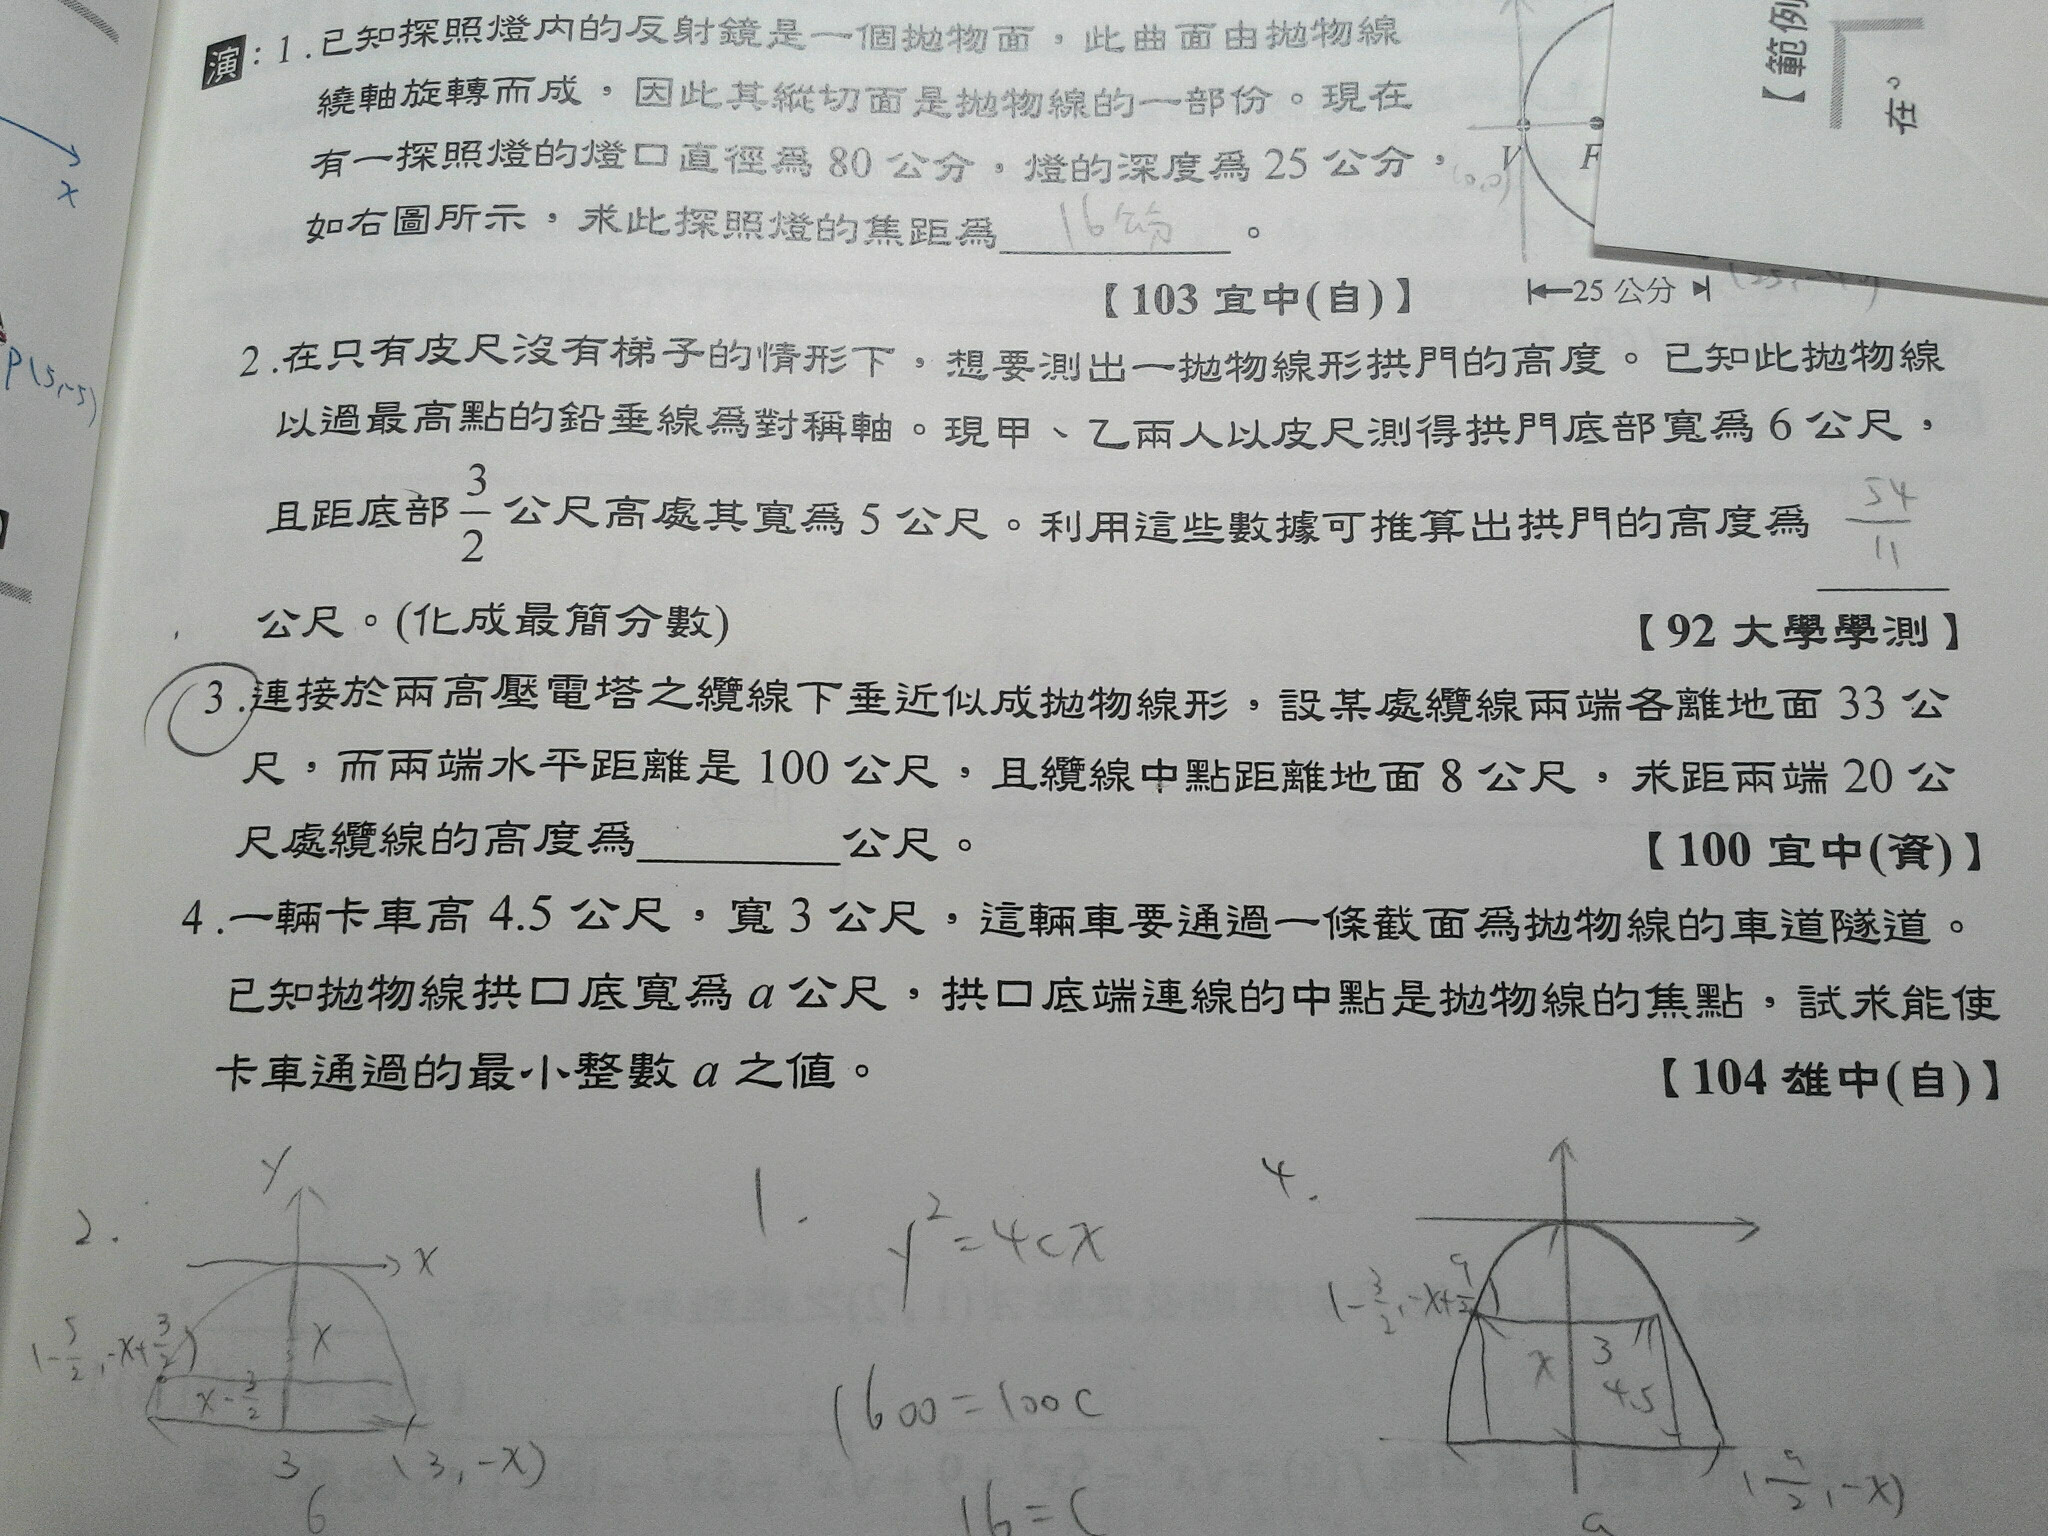 演：1.已知探照燈內的反射鏡是一個拋物面，此曲面由拋物線
繞軸旋轉而成，因此其縱切面是拋物線的一部份。現在
有一探照燈的燈口直徑為80公分，燈的深度為25公分，
如右圖所示，求此探照燈的焦距為 16公分 。
【103宜中(自)】
V F
(0,0)
25公分
【範例
在
2.在只有皮尺沒有梯子的情形下，想要測出一拋物線形拱門的高度。已知此拋物線
以過最高點的鉛垂線為對稱軸。現甲、乙兩人以皮尺測得拱門底部寬為6公尺，
且距底部3/2公尺高處其寬為5公尺。利用這些數據可推算出拱門的高度為 54/11
公尺。(化成最簡分數)
【92大學學測】
3.連接於兩高壓電塔之纜線下垂近似成拋物線形，設某處纜線兩端各離地面33公
尺，而兩端水平距離是100公尺，且纜線中點距離地面8公尺，求距兩端20公
尺處纜線的高度為________公尺。
【100宜中(資)】
4.一輛卡車高4.5公尺，寬3公尺，這輛車要通過一條截面為拋物線的車道隧道。
已知拋物線拱口底寬為a公尺，拱口底端連線的中點是拋物線的焦點，試求能使
卡車通過的最小整數a之值。
【104雄中(自)】
x
P(5,-5)
2.
y
x
(-5/2,-x+3/2)
x
x-3/2
3
(3,-x)
6
1.
y²=4cx
1600=100c
16=c
4.
(-3/2,-x+9/2)
x
3
4.5
(a/2,-x)
a